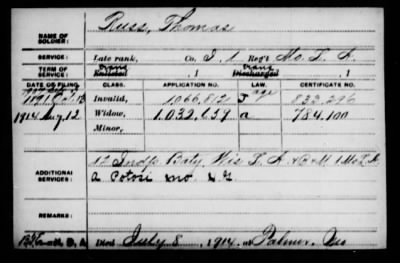 NAME OF SOLDIER: Russ, Thomas
SERVICE: Late rank, Co. I, 1 Reg't Mo. L. A.
TERM OF SERVICE: Enlisted , 1 Discharged , 1
DATE OF FILING. CLASS. APPLICATION NO. LAW. CERTIFICATE NO.
Invalid, 1066,812 age 833,296
1914 Aug 12 Widow, 1.032.159 a 784.100
Minor,
ADDITIONAL SERVICES: 12 Indpt Baty Wis L A & B & M 1 Mo L A
a Potosi Mo H G
Died July 8, 1914, at Palmer, Wis